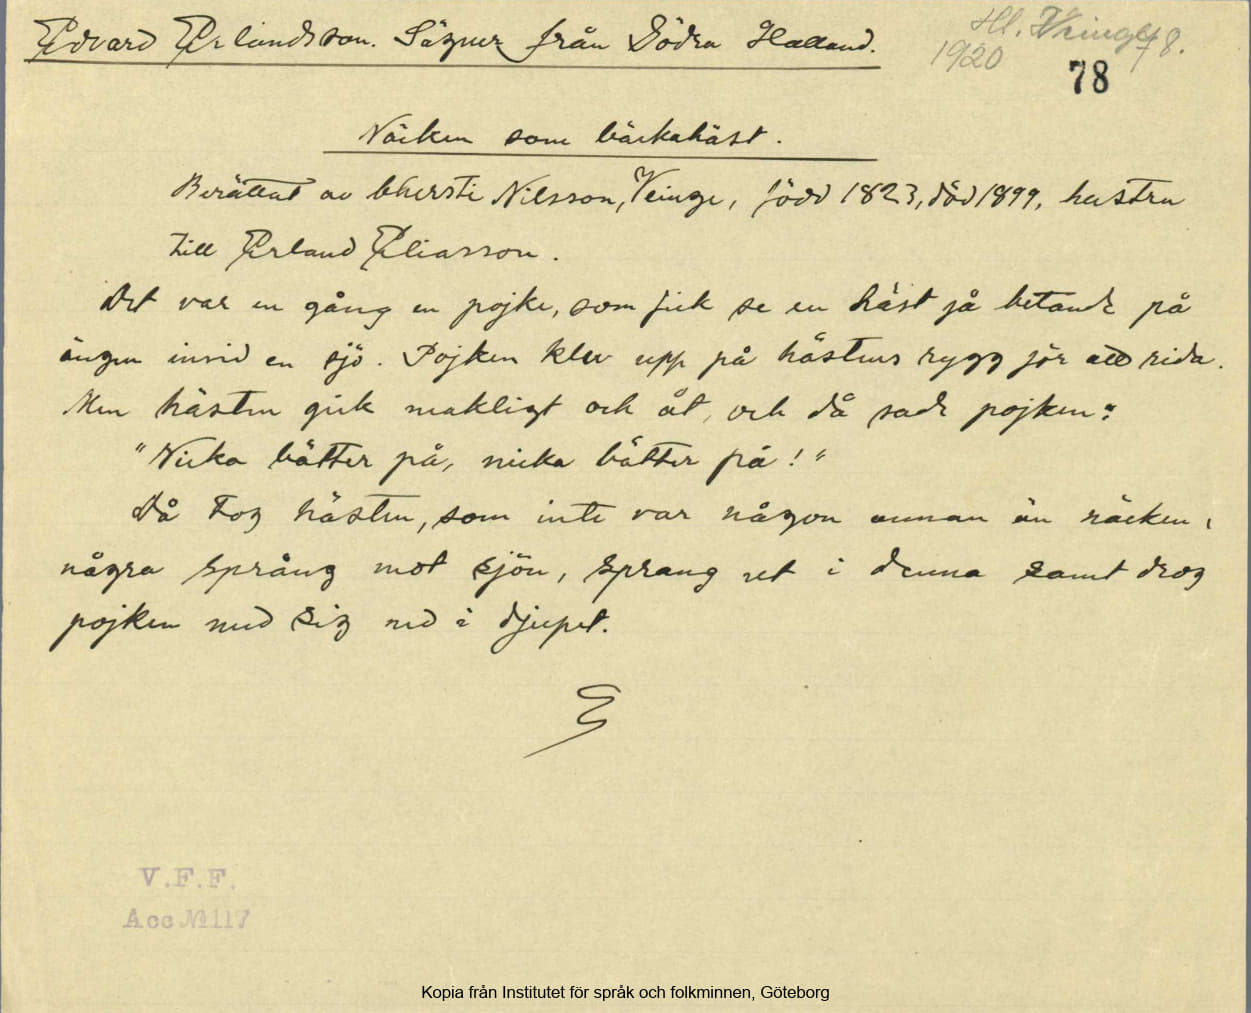 Edvard Erlandsson. Sägner från Södra Halland.
Hl. Veinge 78.
1920
78
Näcken som bäckahäst.
Berättat av Chersti Nilsson, Veinge, född 1823, död 1899, hustru
till Erland Eliasson.
Det var en gång en pojke, som fick se en häst gå betande på
ängen invid en sjö. Pojken klev upp på hästens rygg för att rida.
Men hästen gick makligt och åt, och då sade pojken:
"Nicka bätter på, nicka bätter på!"
Då tog hästen, som inte var någon annan än näcken,
några språng mot sjön, sprang ut i denna samt drog
pojken med sig ned i djupet.
V.F.F.
Acc № 117
Kopia från Institutet för språk och folkminnen, Göteborg